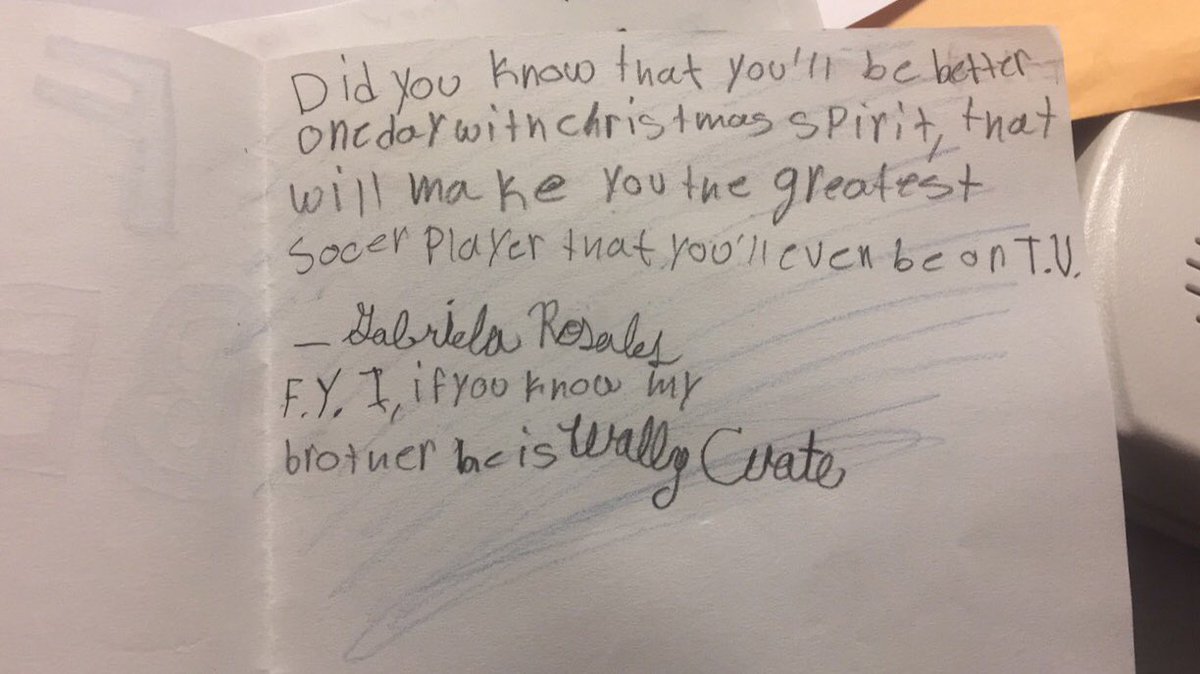 Did you know that you'll be better
one day with christmas spirit, that
will make you the greatest
socer player that you'll even be on T.V.
— Gabriela Rosales
F.Y.I, if you know my
brother he is Wally Cuate